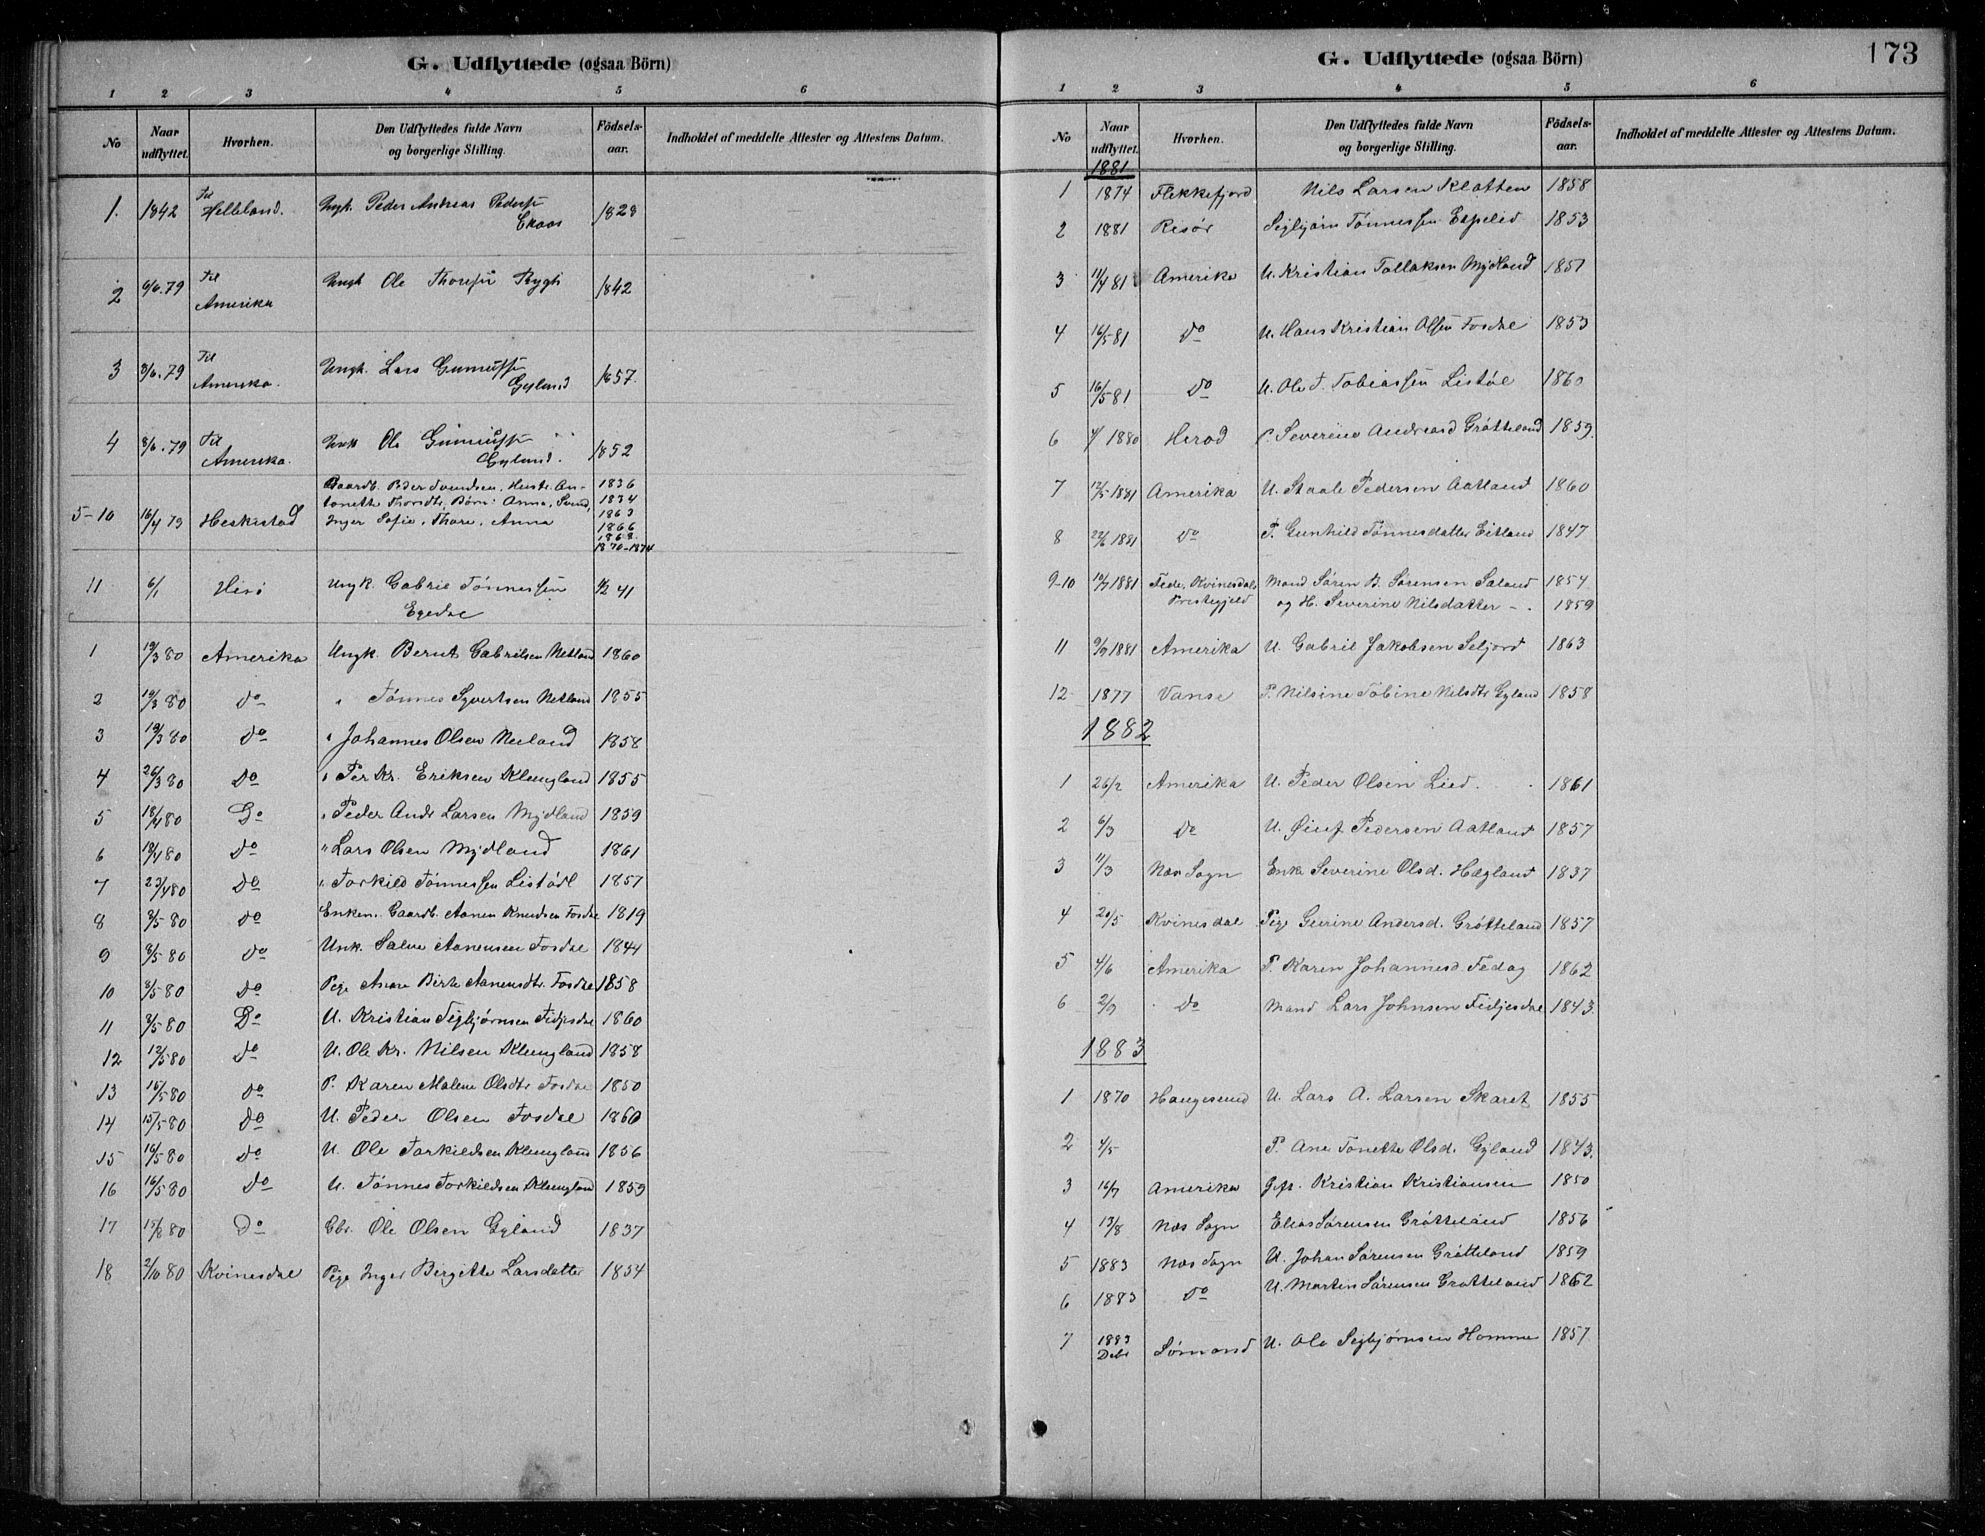 G. Udflyttede (ogsaa Börn)
1 2 3 4 5 6
No Naar udflyttet. Hvorhen. Den Udflyttedes fulde Navn og borgerlige Stilling. Födsels-aar. Indholdet af meddelte Attester og Attestens Datum.
1. 1842 Til Helleland. Ungk. Peder Andreas Peders. 1828
2 6/6.79 Til Amerika Ungk Ole 1842
3 8/6.79 Til Amerika. Ungk. Lars Gunnufs. Gyland 1857.
4 8/6.79 Til Amerika. Ungk Ole Gunnufs. Gyland. 1852
5-10 16/4 79 Heskestad Gaardb. Peder Svendsen, Hustr. An- 1836
tonette Thorsdtr, Børn: Anna, Svend, 1834 1863
Inger Sofie, Thore, Anna 1866
1868
1870-1874
11 6/1 Ungk. Gabriel Tønnessen 41
Egedal
1 19/3 80 Amerika Ungk. Bernt Gabrielsen Netland 1860
2 19/3 80 do " Tønnes Syvertsen Netland 1855
3 19/3 80 Do " Johannes Olsen Neiland 1858
4 26/3 80 Do " Per Kr. Eriksen Klungland 1855
5 18/4 80 Do " Peder Andr Larsen Mydland 1859
6 19/4 80 Do " Lars Olsen Mydland 1861
7 23/4 80 Do " Torkild Tønnessen Listöl 1857
8 3/5 80 do Enkem. Gaardb. Aanen Knudsen Fosdal 1819
9 3/5 80 do Unk. Salve Aanensen Fosdal 1844
10 3/5 80 Do Pige Anne Birte Aanensdtr. Fosdal 1858
11 3/5 80 Do U. Kristian Sigbjørnsen Fidjesdal 1860
12 12/5 80 do U. Ole Kr. Nilsen Klungland 1858
13 16/5 80 do P. Karen Malene Olsdtr Fosdal 1850
14 15/5 80 Do U. Peder Olsen Fosdal 1860
15 16/5 80 Do U. Ole Torkildsen Klungland 1856
16 16/5 80 Do U. Tønnes Torkildsen Klungland 1859
17 15/8 80 Do Gbr. Ole Olsen Gyland 1837
18 2/10 80 Kvinesdal Pige Inger Birgitte Larsdatter 1854
G. Udflyttede (ogsaa Börn) 173
1 2 3 4 5 6
No Naar udflyttet. Hvorhen. Den Udflyttedes fulde Navn og borgerlige Stilling. Födsels-aar. Indholdet af meddelte Attester og Attestens Datum.
1881
1 1874 Flekkefjord Nils Larsen Klatten 1858
2 1881 Risør Sigbjørn Tønnessen Espeled 1853
3 11/4 81 Amerika U. Kristian Tollaksen Mydland 1857
4 16/5 81 Do U. Hans Kristian Olsen Fosdal 1853
5 16/5 81 Do U. Ole T. Tobiassen Listøl 1860
6 1880 Herad P. Severine Andreasd Grøtteland 1859.
7 12/5 1881 Amerika U. Staale Pedersen Aatland 1860
8 22/6 1881 Do P. Gunhild Tønnesdatter Eitland 1847
9-10 10/7 1881 Fede, Kvinesdals Mand Søren B. Sørensen Saland 1854
Prestegjeld og H. Severine Nilsdatter - . 1859
11 9/9 1881 Amerika U. Gabriel Jakobsen Seljord 1863
12 1877 Vanse P. Nilsine Tobine Nilsdtr Gyland 1858
1882
1 26/2 Amerika U. Peder Olsen Lied. 1861
2 6/3 Do U. Øiuf Pedersen Aatland 1857
3 11/3 Næs Sogn Enke Severine Olsd. Hægland 1837
4 20/5 Kvinesdal Pige Gurine Andersd. Grøtteland 1857
5 4/6 Amerika P. Karen Johannesd. Fedog 1862
6 2/9 Do Mand Lars Johnsen Fidjesdal 1843.
1883
1 1870 Haugesund U. Lars A. Larsen Skaret 1855
2 4/5 P. Ane Tonette Olsd. Gyland 1843.
3 16/7 Amerika Gft. Kristian Kristiansen 1850
4 13/8 Næs Sogn Elias Sørensen Grøtteland 1856
5 1883 Næs Sogn U. Johan Sørensen Grøtteland 1859
6 1883 Do U. Martin Sørensen Grøtteland 1862
7 1883 Sømand U. Ole Sigbjørnsen Homme 1857